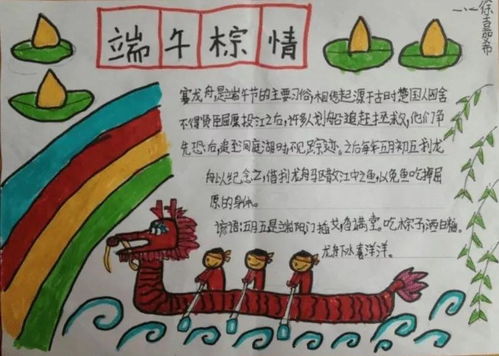 端午棕情
赛龙舟,是端午节的主要习俗,相传起源于古时楚国人因舍
不得贤臣屈原投江之后,许多人划船追赶拯救,他们争
先恐后,追至洞庭湖时不见踪迹。之后每年五月初五划龙
舟以纪念之,借划龙舟驱散江中之鱼,以免鱼吃掉屈
原的身体。
谚语:五月五是端阳,门插艾,香满堂。吃棕子洒白糖。
龙舟下水喜洋洋。